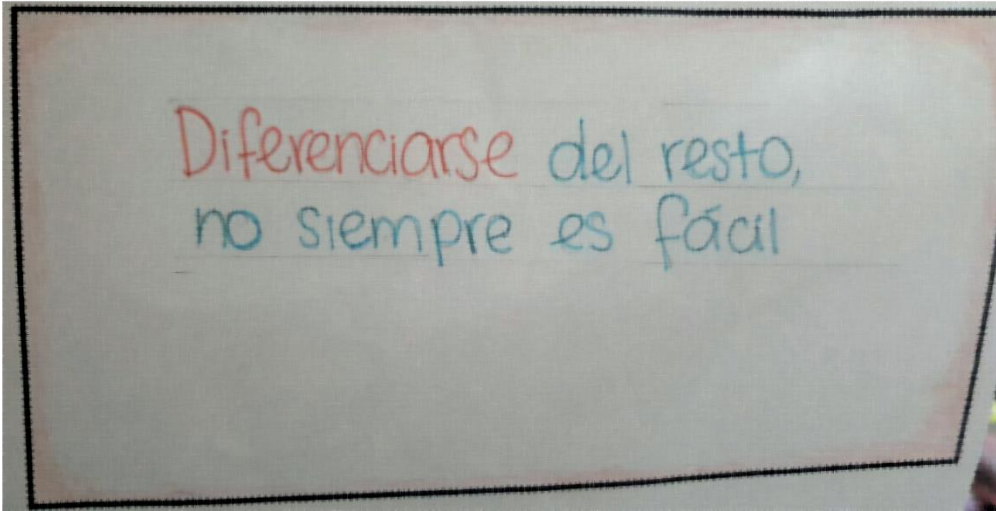 Diferenciarse del resto,
no siempre es fácil